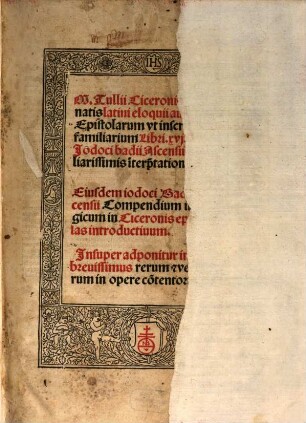 IHS
M. Tullii Ciceroni
natis latini eloquii au
Epistolarum vt inscr
familiarium Libri. xvj
Jodoci badii Ascensii
liarissimis iterp̃tation
Eiusdem iodoci Bad
censii Compendium
gicum in Ciceronis ep
las introductiuum.
Insuper adponitur in
breuissimus rerum ⁊ ve
rum in opere cõtentor